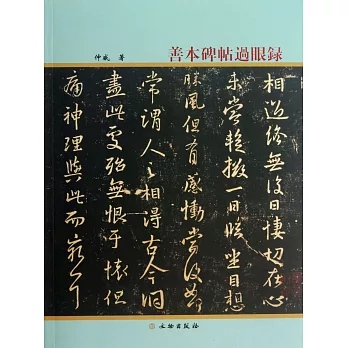 善本碑帖過眼録
仲威 著
相過終無復日悽切在心
未嘗暫掇一日臨坐目想
勝風但有感慟當復如
常謂人之相得古今洞
盡此處殆無恨于懷但
痛神理與此而窮耳
文物出版社